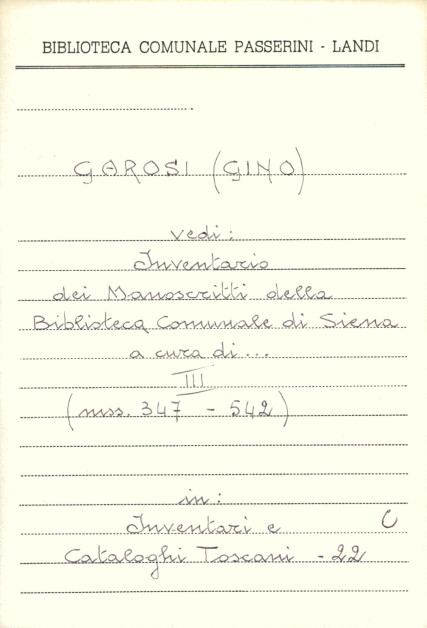 BIBLIOTECA COMUNALE PASSERINI - LANDI
GAROSI (GINO)
vedi:
Inventario
dei Manoscritti della
Biblioteca Comunale di Siena
a cura di...
III
(mss. 347 - 542)
in:
Inventari e C
Cataloghi Toscani - 22